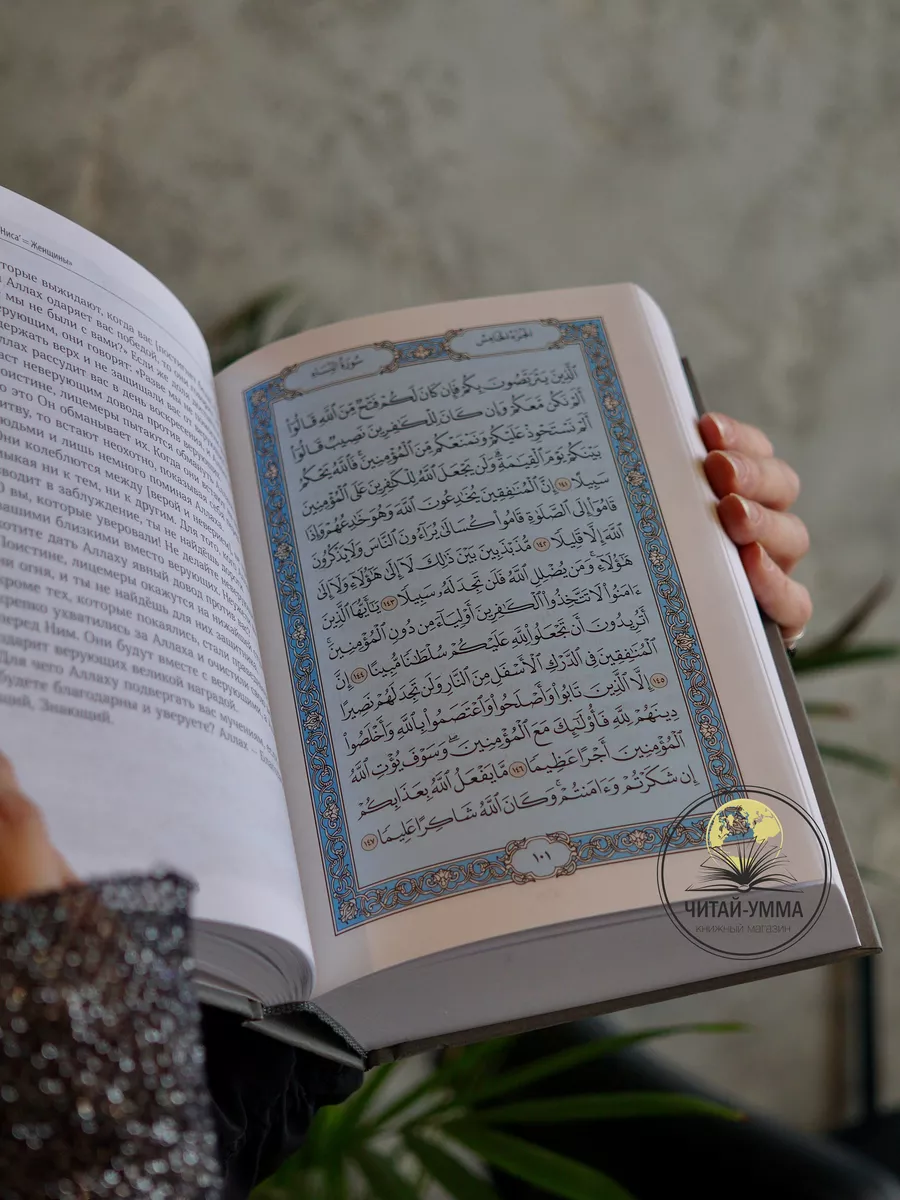 Ниса' = Женщины»
выжидают, когда вас
Аллах одаряет вас победой, то они
мы не были с вами?» Если же доля
они говорят: «Разве мы не
держать верх и не защищали вас от
рассудит вас в день воскресения,
неверующим довода против
лицемеры пытаются обмануть
это Он обманывает их. Когда они
то встают неохотно, показывая
и лишь немного поминая Аллаха.
Они колеблются между [верой и
ни к тем, ни к другим. Для того,
в заблуждение, ты не найдёшь
О вы, которые уверовали! Не делайте
вашими близкими вместо верующих.
хотите дать Аллаху явный довод против
Поистине, лицемеры окажутся на нижайшей
огня, и ты не найдёшь для них
кроме тех, которые покаялись, стали
крепко ухватились за Аллаха и очистили
перед Ним. Они будут вместе с верующими,
одарит верующих великой наградой.
Для чего Аллаху подвергать вас мучениям,
будете благодарны и уверуете? Аллах –
Знающий.
سُورَةُ النِّسَاءِ الجُزْءُ الخَامِسُ
الَّذِينَ يَتَرَبَّصُونَ بِكُمْ فَإِن كَانَ لَكُمْ فَتْحٌ مِّنَ اللَّهِ قَالُوٓا۟
أَلَمْ نَكُن مَّعَكُمْ وَإِن كَانَ لِلْكَٰفِرِينَ نَصِيبٌ قَالُوٓا۟
أَلَمْ نَسْتَحْوِذْ عَلَيْكُمْ وَنَمْنَعْكُم مِّنَ الْمُؤْمِنِينَ ۚ فَاللَّهُ يَحْكُمُ
بَيْنَكُمْ يَوْمَ الْقِيَٰمَةِ ۗ وَلَن يَجْعَلَ اللَّهُ لِلْكَٰفِرِينَ عَلَى الْمُؤْمِنِينَ
سَبِيلًا ١٤١ إِنَّ الْمُنَٰفِقِينَ يُخَٰدِعُونَ اللَّهَ وَهُوَ خَٰدِعُهُمْ وَإِذَا
قَامُوٓا۟ إِلَى الصَّلَوٰةِ قَامُوا۟ كُسَالَىٰ يُرَآءُونَ النَّاسَ وَلَا يَذْكُرُونَ
اللَّهَ إِلَّا قَلِيلًا ١٤٢ مُّذَبْذَبِينَ بَيْنَ ذَٰلِكَ لَآ إِلَىٰ هَٰٓؤُلَآءِ وَلَآ إِلَىٰ
هَٰٓؤُلَآءِ ۚ وَمَن يُضْلِلِ اللَّهُ فَلَن تَجِدَ لَهُۥ سَبِيلًا ١٤٣ يَٰٓأَيُّهَا الَّذِينَ
ءَامَنُوا۟ لَا تَتَّخِذُوا۟ الْكَٰفِرِينَ أَوْلِيَآءَ مِن دُونِ الْمُؤْمِنِينَ ۚ
أَتُرِيدُونَ أَن تَجْعَلُوا۟ لِلَّهِ عَلَيْكُمْ سُلْطَٰنًا مُّبِينًا ١٤٤ إِنَّ
الْمُنَٰفِقِينَ فِى الدَّرْكِ الْأَسْفَلِ مِنَ النَّارِ وَلَن تَجِدَ لَهُمْ نَصِيرًا
١٤٥ إِلَّا الَّذِينَ تَابُوا۟ وَأَصْلَحُوا۟ وَاعْتَصَمُوا۟ بِاللَّهِ وَأَخْلَصُوا۟
دِينَهُمْ لِلَّهِ فَأُو۟لَٰٓئِكَ مَعَ الْمُؤْمِنِينَ ۖ وَسَوْفَ يُؤْتِ اللَّهُ
الْمُؤْمِنِينَ أَجْرًا عَظِيمًا ١٤٦ مَّا يَفْعَلُ اللَّهُ بِعَذَابِكُمْ
إِن شَكَرْتُمْ وَءَامَنتُمْ ۚ وَكَانَ اللَّهُ شَاكِرًا عَلِيمًا ١٤٧
١٠١
ЧИТАЙ-УММА
КНИЖНЫЙ МАГАЗИН